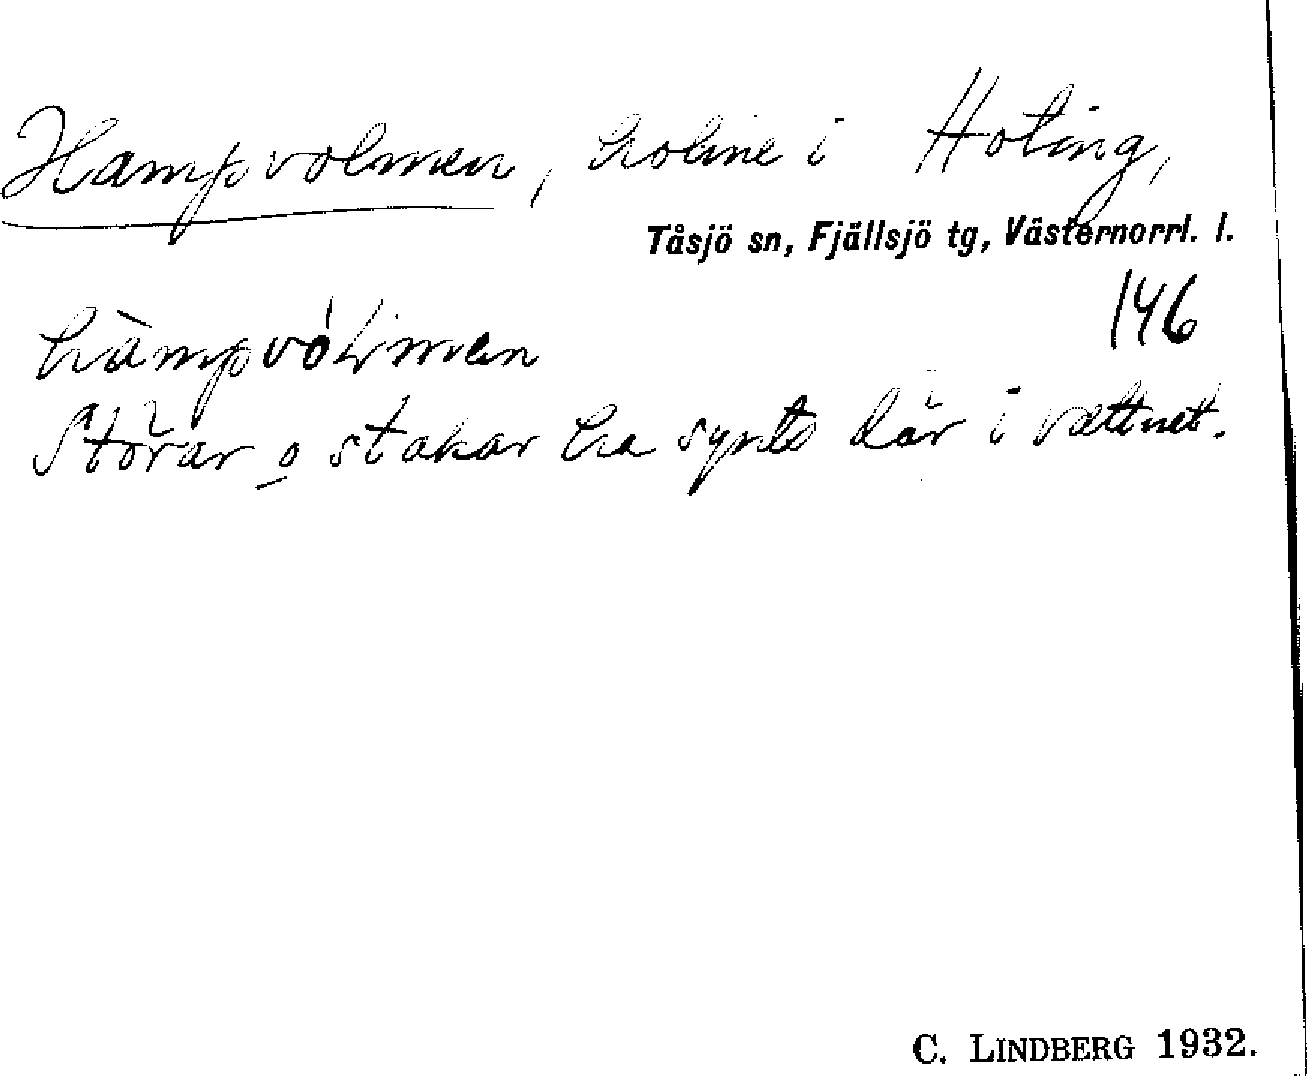 Hampvolmen, holme i Hoting,
Tåsjö sn, Fjällsjö tg, Västernorrl. l.
146
hàmpvólmen
Störar o stakar ha synts där i vattnet.
C. LINDBERG 1932.